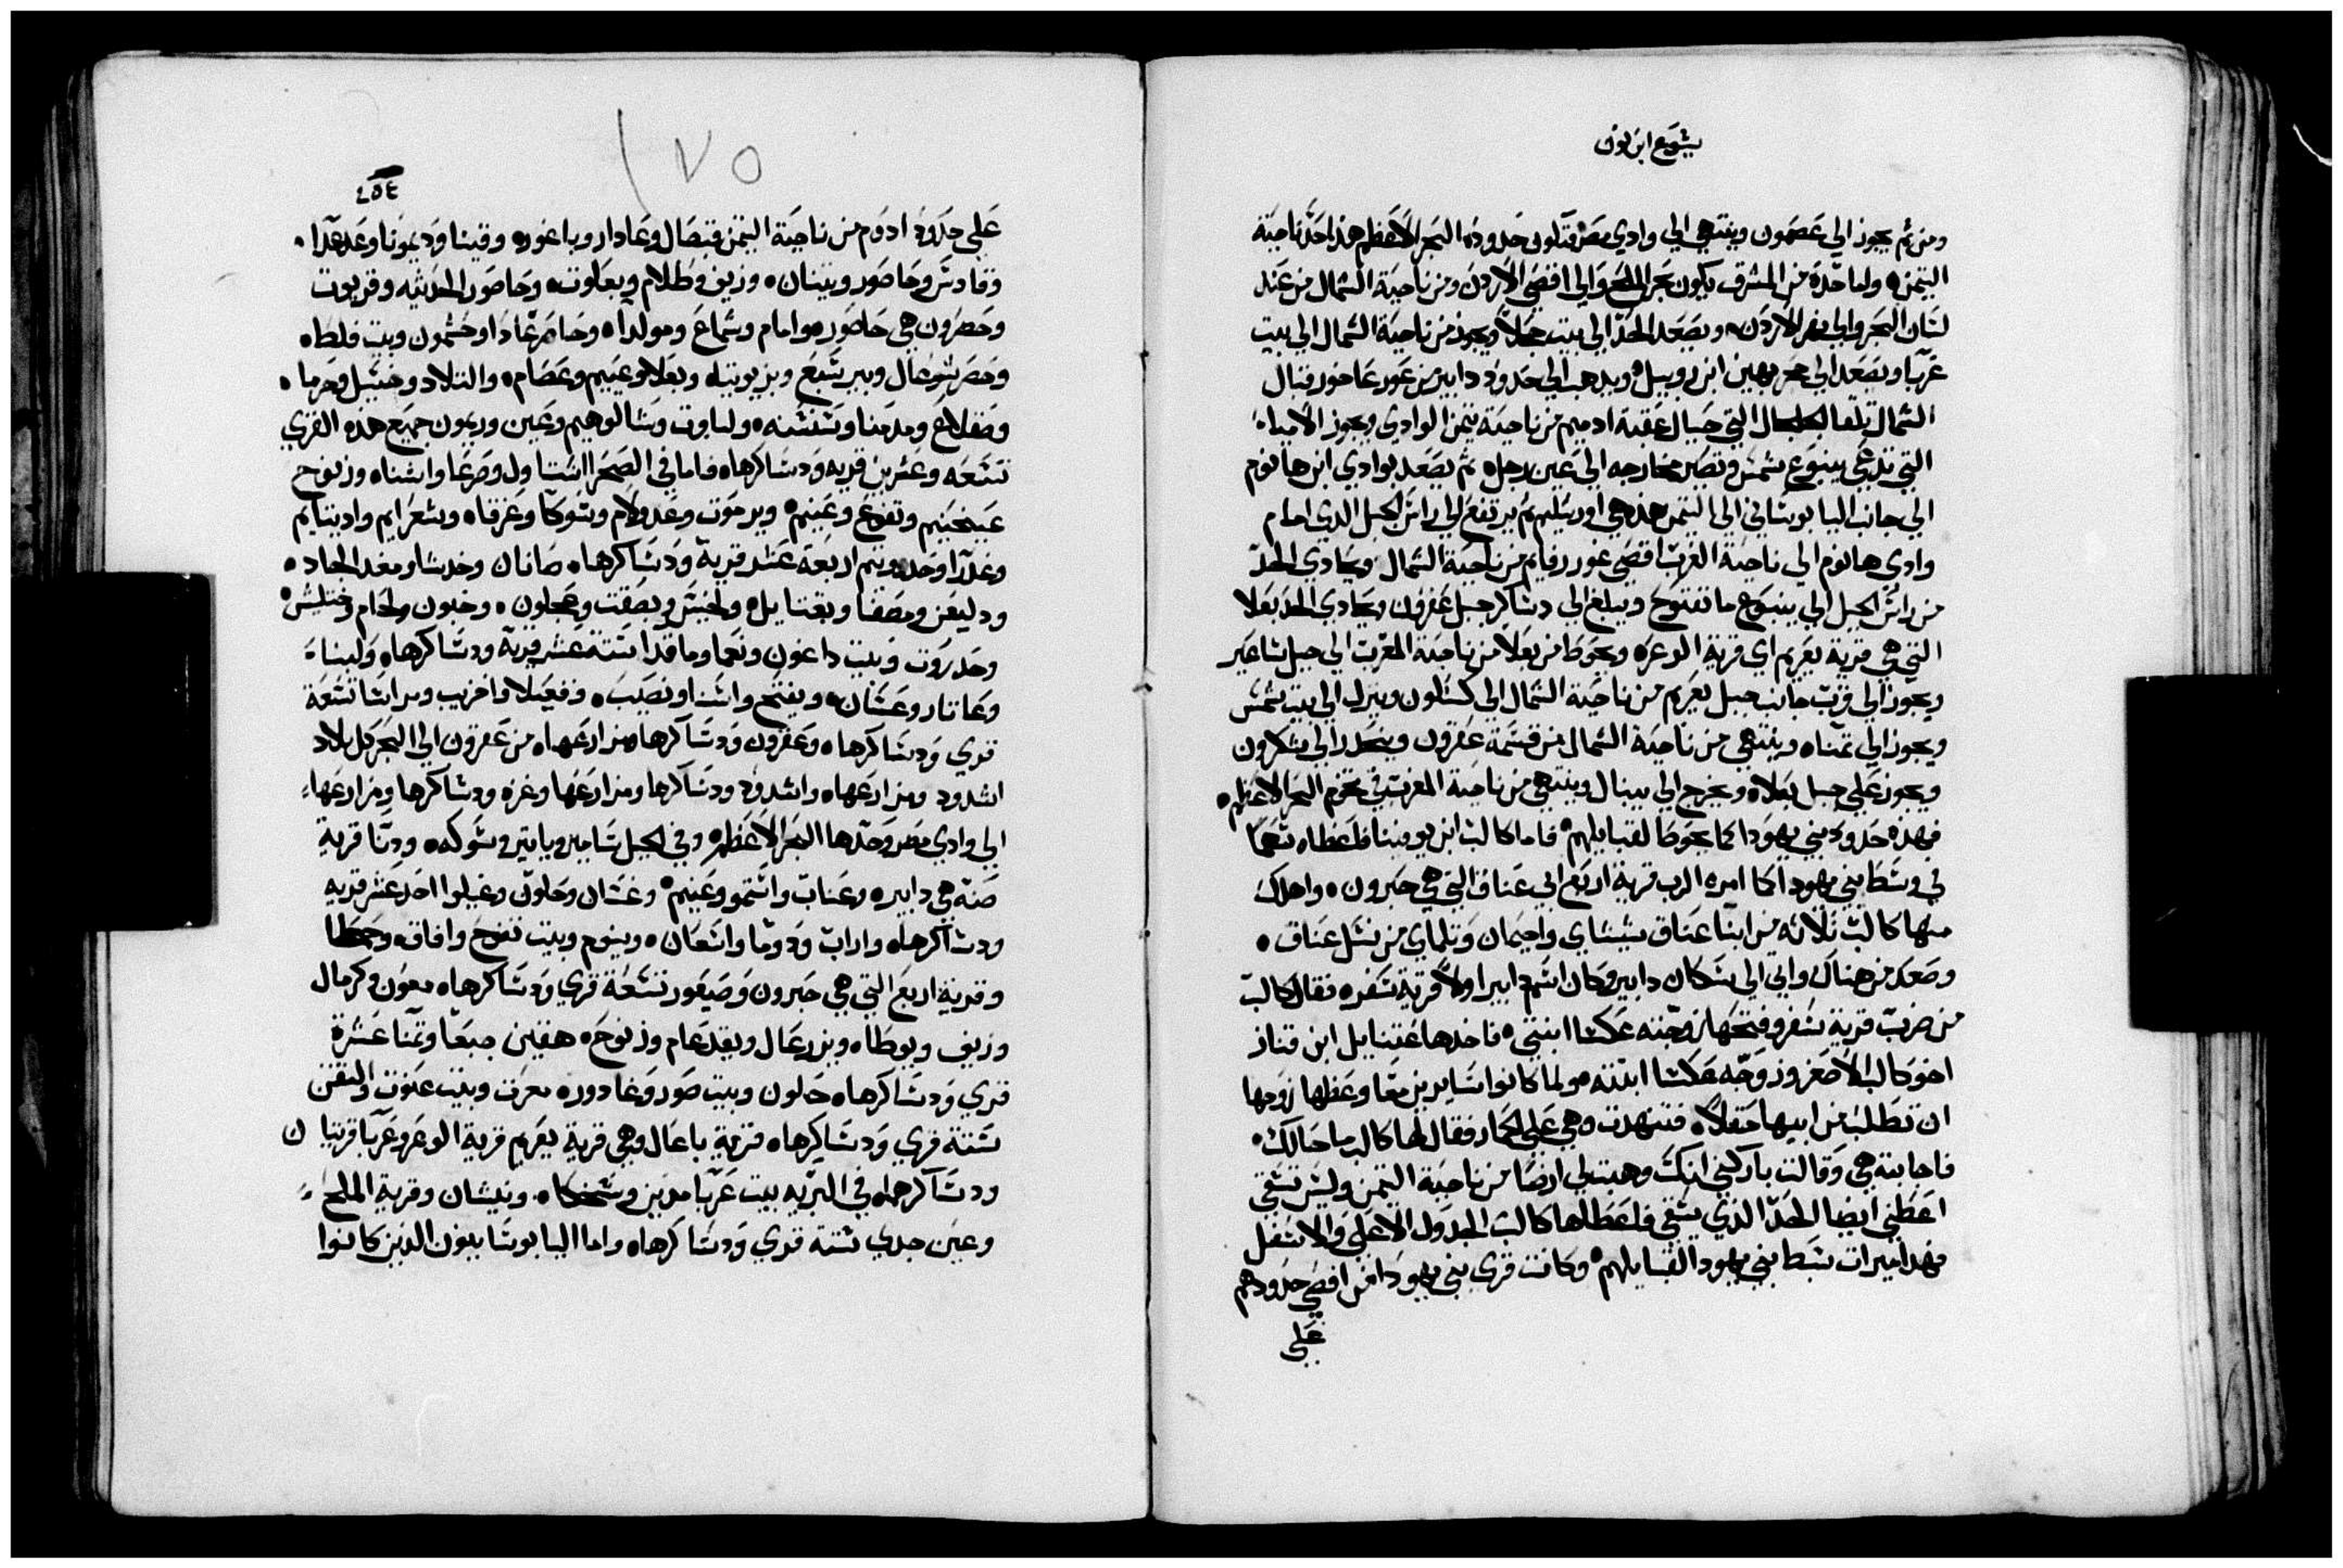 يشوع ابن نون
ومن ثم يجوز الي عصمون وينتهي الي وادي مصر فتكون حدوده البحر الاعظم هذا حد ناحية
التيمن واما حده من المشرق يكون بحر الملح والي اقصي الاردن ومن ناحية الشمال من عند
لسان البحر والي نهر الاردن ويصعد الحد الي بيت حجلا ويجوز من ناحية الشمال الي بيت
عربا ويصعد الي حجر بهين ابن روبيل ويذهب الي حدود دابير من غور عاخور قبال
الشمال تلقا الجلجال التي حيال عقبة ادميم من ناحية تيمن الوادي ويجوز الامياه
التي تدعي ينبوع شمس وتصير مخارجه الي عين رجل ثم يصعد بوادي ابن هانوم
الي جانب اليابوساني الي التيمن هذه هي اورشليم ثم يرتفع الي راس الجبل الذي امام
وادي هانوم الي ناحية الغرب اقصي غور رفايم من ناحية الشمال ويحادي الحد
من راس الجبل الي ينبوع ما نفتوح ويبلغ الي دساكر جبل عفرون ويحادي الحد بعلا
التي هي قرية يعريم اي قرية الوعره ويحوط من بعلا من ناحية المغرب الي جبل ساعير
ويجوز الي قرب جانب جبل يعريم من ناحية الشمال الي كسلون وينزل الي بيت شمس
ويجوز الي تمناه وينتهي من ناحية الشمال من قسمة عقرون وينحدر الي شكرون
ويجوز علي جبل بعلاه ويخرج الي يبنال وينتهي من ناحية المغرب في تخوم البحر الاعظم
فهذه حدود بني يهودا كما يحوطا لقبايلهم فاما كالب ابن يوفينا فاعطاه سهما
في وسط بني يهودا كما امره الرب قرية اربع ابي عناق التي هي حبرون واهلك
منها كالب ثلاثه من ابنا عناق شيشاي واحيمان وتلماي من نسل عناق
وصعد من هناك واتي الي سكان دابير وكان اسم دابير اولا قرية سفره فقال كالب
من ضرب قرية سفر وفتحها زوجته عكسا ابنتي فاخدها عتنايل ابن قناز
اخو كالب الاصغر وزوجه عكسا ابنته ولما كانوا سايرين معا وعظها زوجها
ان تطلب من ابيها حقلا فتنهدت وهي علي الحمار فقال لها كالب ما حالك
فاجابته هي وقالت باركني انك وهبت لي ارضا من ناحية التيمن وليس تسقي
اعطني ايضا الحد الذي يسقي فاعطاها كالب الجدول الاعلي والاسفل
فهذا ميرات سبط بني يهودا لقبايلهم وكانت قري بني يهودا من اقصي حدودهم
علي
١٧٥
٢٥٤
علي حدود ادوم من ناحية التيمن قبصال وعادار وياغور وقينا وديمونا وعدعدا
وقادس وحاصور ويتنان وزيف وطلام وبعلوت وحاصور الحديثه وقريوت
وحصرون هي حاصور وامام وشماع ومولدا وحاصر عادا وحشمون وبيت فلط
وحصر شوعال وبير سبع وبزيوتيه وبعلا وعييم وعصام والتلاد وخسيل وحرما
وصقلاغ ومدمنا وسنسنه ولباوت وشالوهيم وعين وريمون جميع هذه القري
تسعه وعشرين قريه ودساكرها فاما في الصحرا استاول وصرعا واشناه وزنوح
عينجنيم وتفوح وعينم ويرموت وعدولام وسوكا وعزقاه وشعرايم واديتايم
وغدرا وحدرويتم اربعة عشر قرية ودساكرها صانان وحدشا ومغدالجاد
ودليعن ومصفا ويقتايل ولخيس وبصقت وعجلون وخبون ولحام وختليش
وحدروت وبيت داغون ونعما وماقدا ستة عشر قرية ودساكرها ولبنا
وعاتار وعشان ويفتح واشنا ونصيب وقعيلا واخزيب ومراشا تسعة
قري ودساكرها وعقرون ودساكرها ومزارعها من عقرون الي البحر كل بلاد
اشدود ومزارعها واشدود ودساكرها ومزارعها وغزه ودساكرها ومزارعها
الي وادي مصر وحدها البحر الاعظم وفي الجبل شامير وياتير وسوكه ودنا قرية
صنه هي دابير وعناب واشتمو وعنيم وغشان وحلون وغيلوا احد عشر قريه
ودساكرها واراب ودوما واشعان وينوم وبيت تفوح وافاقه وحمطا
وقرية اربع التي هي حبرون وصيغور تسعة قري ودساكرها معون وكرمال
وزيف ويوطاه ويزرعال ويقدعام وزنوح هقين جبعا وتمنا عشرة
قري ودساكرها حلون وبيت صور وغادور معرت وبيت عنوت والتقن
ستة قري ودساكرها قرية باعال وهي قرية يعريم قرية الوعر وعربا قريتان
ودساكرها في البريه بيت عربا مدين وسخخاه ونيشان وقرية الملح
وعين جدي ستة قري ودساكرها واما اليابوسايون الذين كانوا